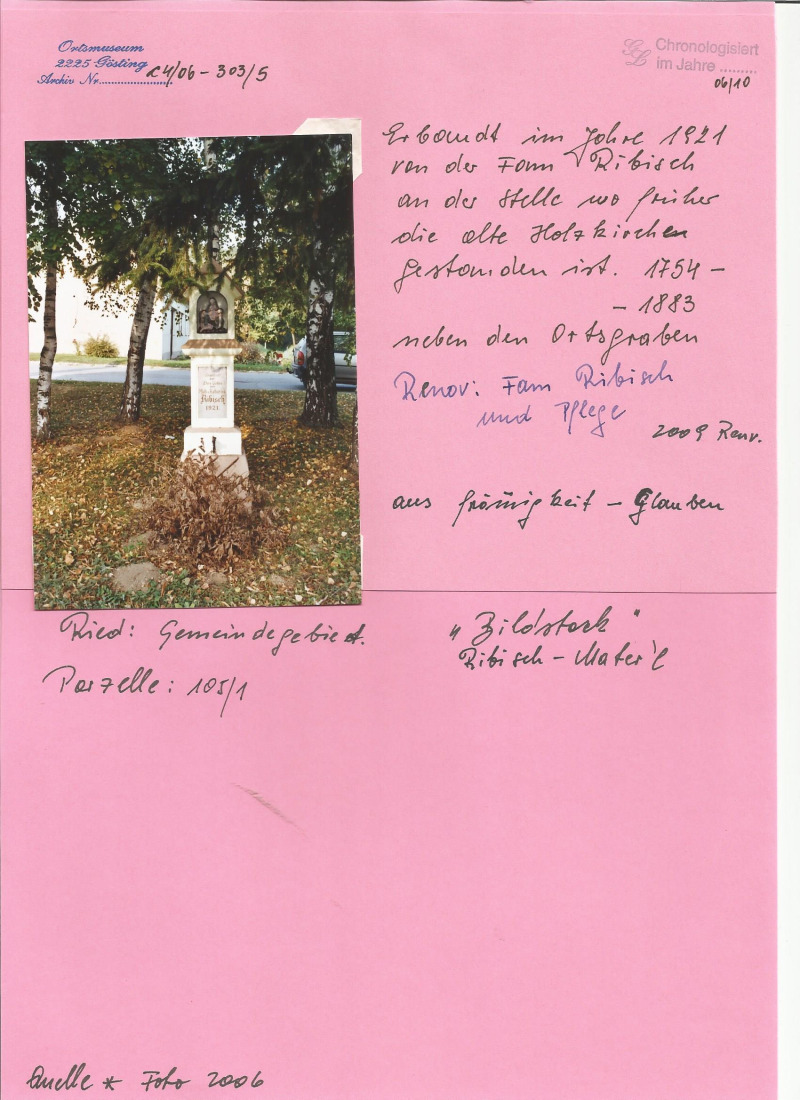 Ortsmuseum
2225 Gösting
Archiv Nr. C4/06 - 303/5
Chronologisiert
im Jahre ..........
06/10
Erbaudt im Jahre 1921
von der Fam Ribisch
an der Stelle wo früher
die alte Holzkirchen
gestanden ist. 1754 -
- 1883
neben den Ortsgraben
Renov: Fam Ribisch
und Pflege
2009 Renv.
aus frömigkeit - Glauben
Ribisch
1921
Ried: Gemeindegebiet.
Parzelle: 105/1
„Bildstock"
Ribisch - Mater'l
Quelle * Foto 2006